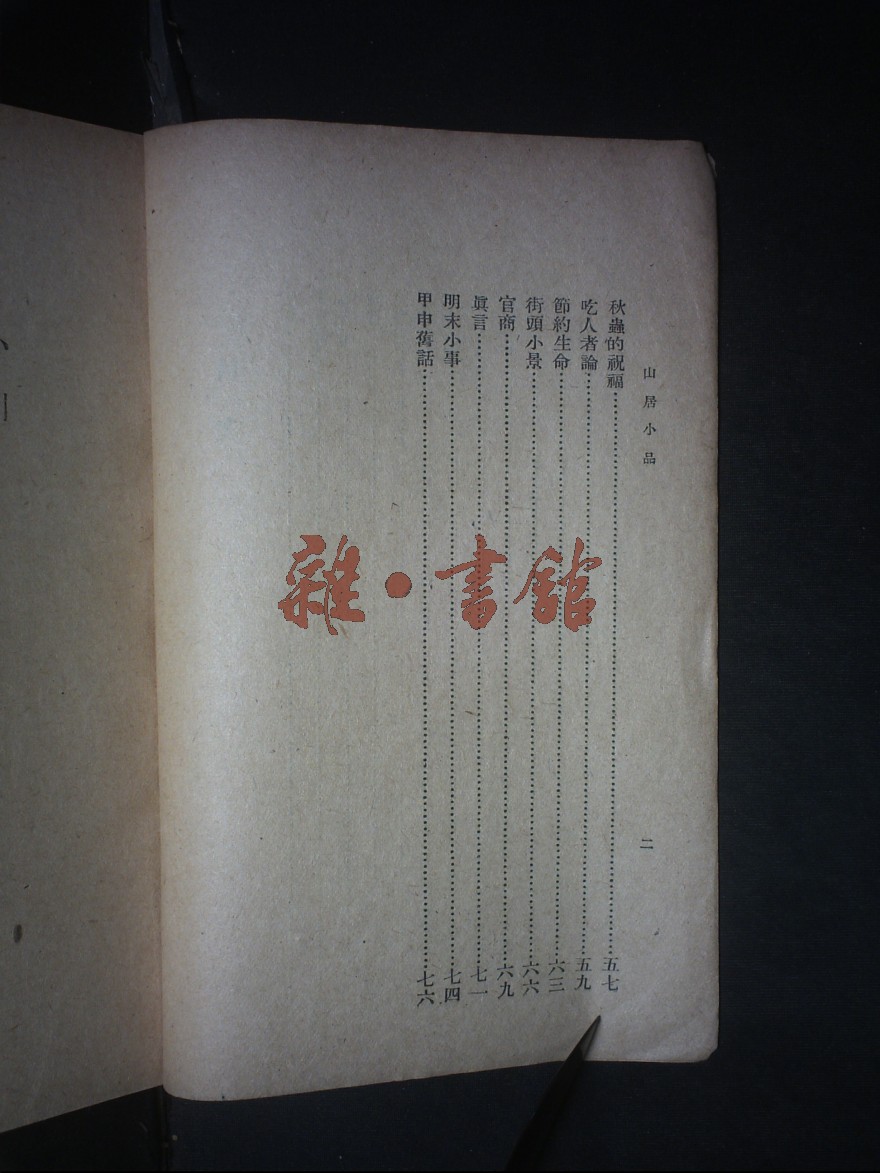 山居小品
二
秋蟲的祝福……五七
吃人者論……五九
節約生命……六三
街頭小景……六六
官商……六九
眞言……七一
明末小事……七四
甲申舊話……七六
雜·書館